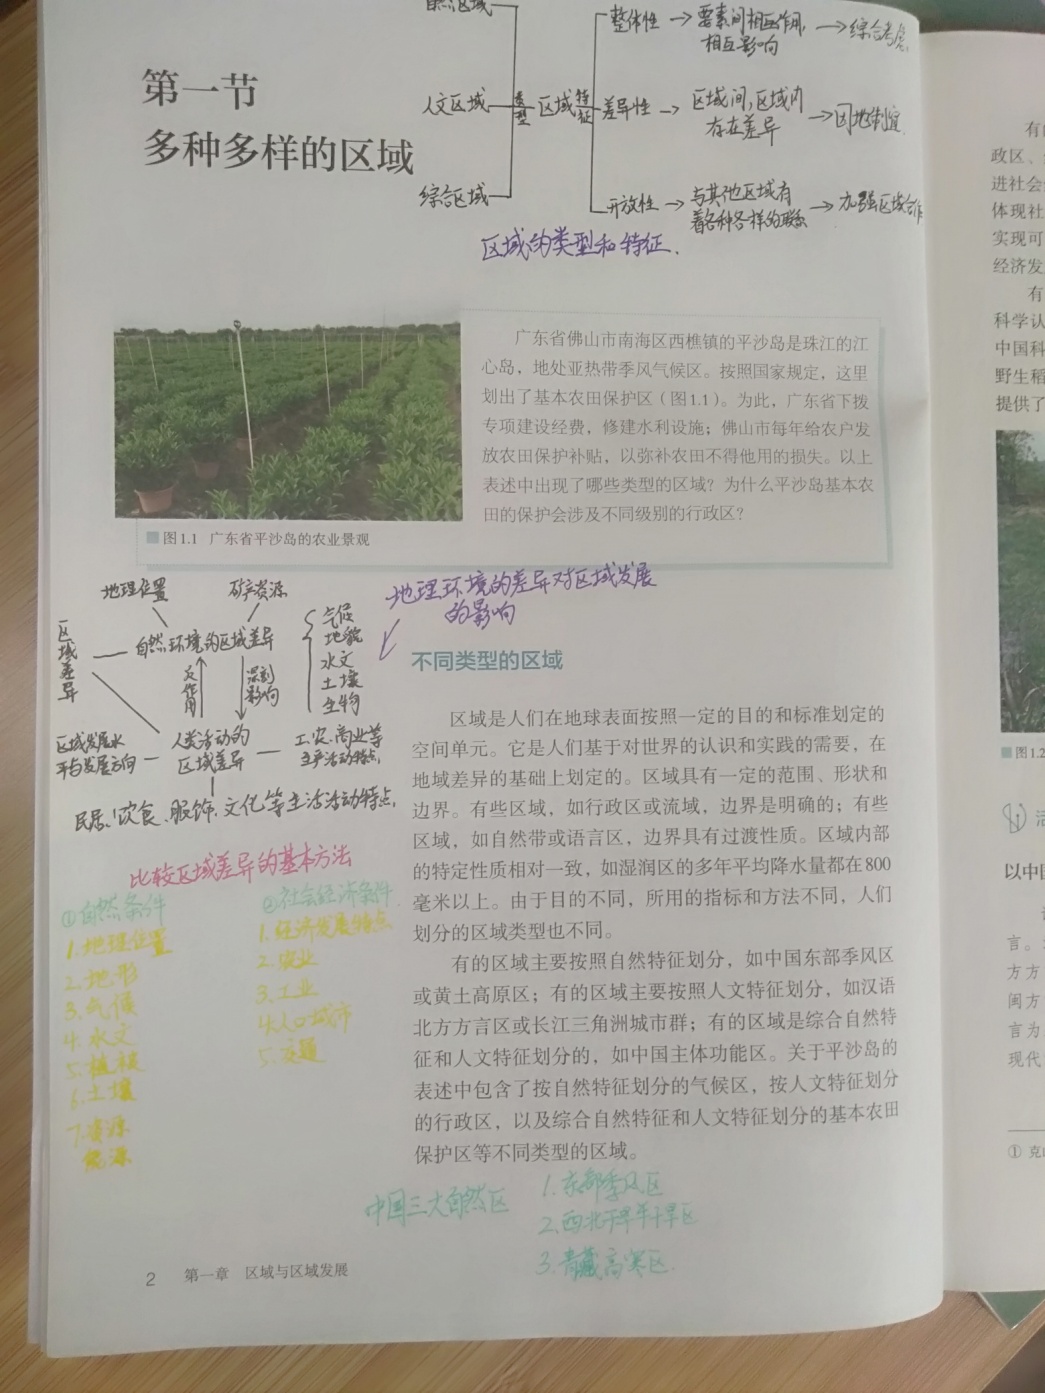 自然区域
整体性 → 要素间相互作用,
相互影响
→ 综合考虑
第一节
人文区域
类型
区域
特征
差异性 → 区域间,区域内
存在差异
→ 因地制宜
多种多样的区域
综合区域
开放性 → 与其他区域有
着各种各样的联系
→ 加强区域合作
区域的类型和特征.
广东省佛山市南海区西樵镇的平沙岛是珠江的江
心岛，地处亚热带季风气候区。按照国家规定，这里
划出了基本农田保护区（图1.1）。为此，广东省下拨
专项建设经费，修建水利设施；佛山市每年给农户发
放农田保护补贴，以弥补农田不得他用的损失。以上
表述中出现了哪些类型的区域？为什么平沙岛基本农
田的保护会涉及不同级别的行政区？
图1.1 广东省平沙岛的农业景观
地理环境的差异对区域发展
的影响
地理位置
矿产资源
区域差异
自然环境的区域差异
气候
地貌
水文
土壤
生物
反作用
深刻影响
区域发展水
平与发展方向
人类活动的
区域差异
工农、商业等
生产活动特点,
民居、饮食、服饰、文化等生活活动特点,
不同类型的区域
区域是人们在地球表面按照一定的目的和标准划定的
空间单元。它是人们基于对世界的认识和实践的需要，在
地域差异的基础上划定的。区域具有一定的范围、形状和
边界。有些区域，如行政区或流域，边界是明确的；有些
区域，如自然带或语言区，边界具有过渡性质。区域内部
的特定性质相对一致，如湿润区的多年平均降水量都在800
毫米以上。由于目的不同，所用的指标和方法不同，人们
划分的区域类型也不同。
有的区域主要按照自然特征划分，如中国东部季风区
或黄土高原区；有的区域主要按照人文特征划分，如汉语
北方方言区或长江三角洲城市群；有的区域是综合自然特
征和人文特征划分的，如中国主体功能区。关于平沙岛的
表述中包含了按自然特征划分的气候区，按人文特征划分
的行政区，以及综合自然特征和人文特征划分的基本农田
保护区等不同类型的区域。
比较区域差异的基本方法
①自然条件
1.地理位置
2.地形
3.气候
4.水文
5.植被
6.土壤
7.资源
能源
②社会经济条件
1.经济发展特点
2.农业
3.工业
4.人口城市
5.交通
中国三大自然区
1.东部季风区
2.西北干旱半干旱区
3.青藏高寒区.
2 第一章 区域与区域发展
政区、
进社会
体现社
实现可
经济发
有
科学认
中国科
野生稻
提供了
图1.2
活
以中国
言。
方方
闽方
言为
现代